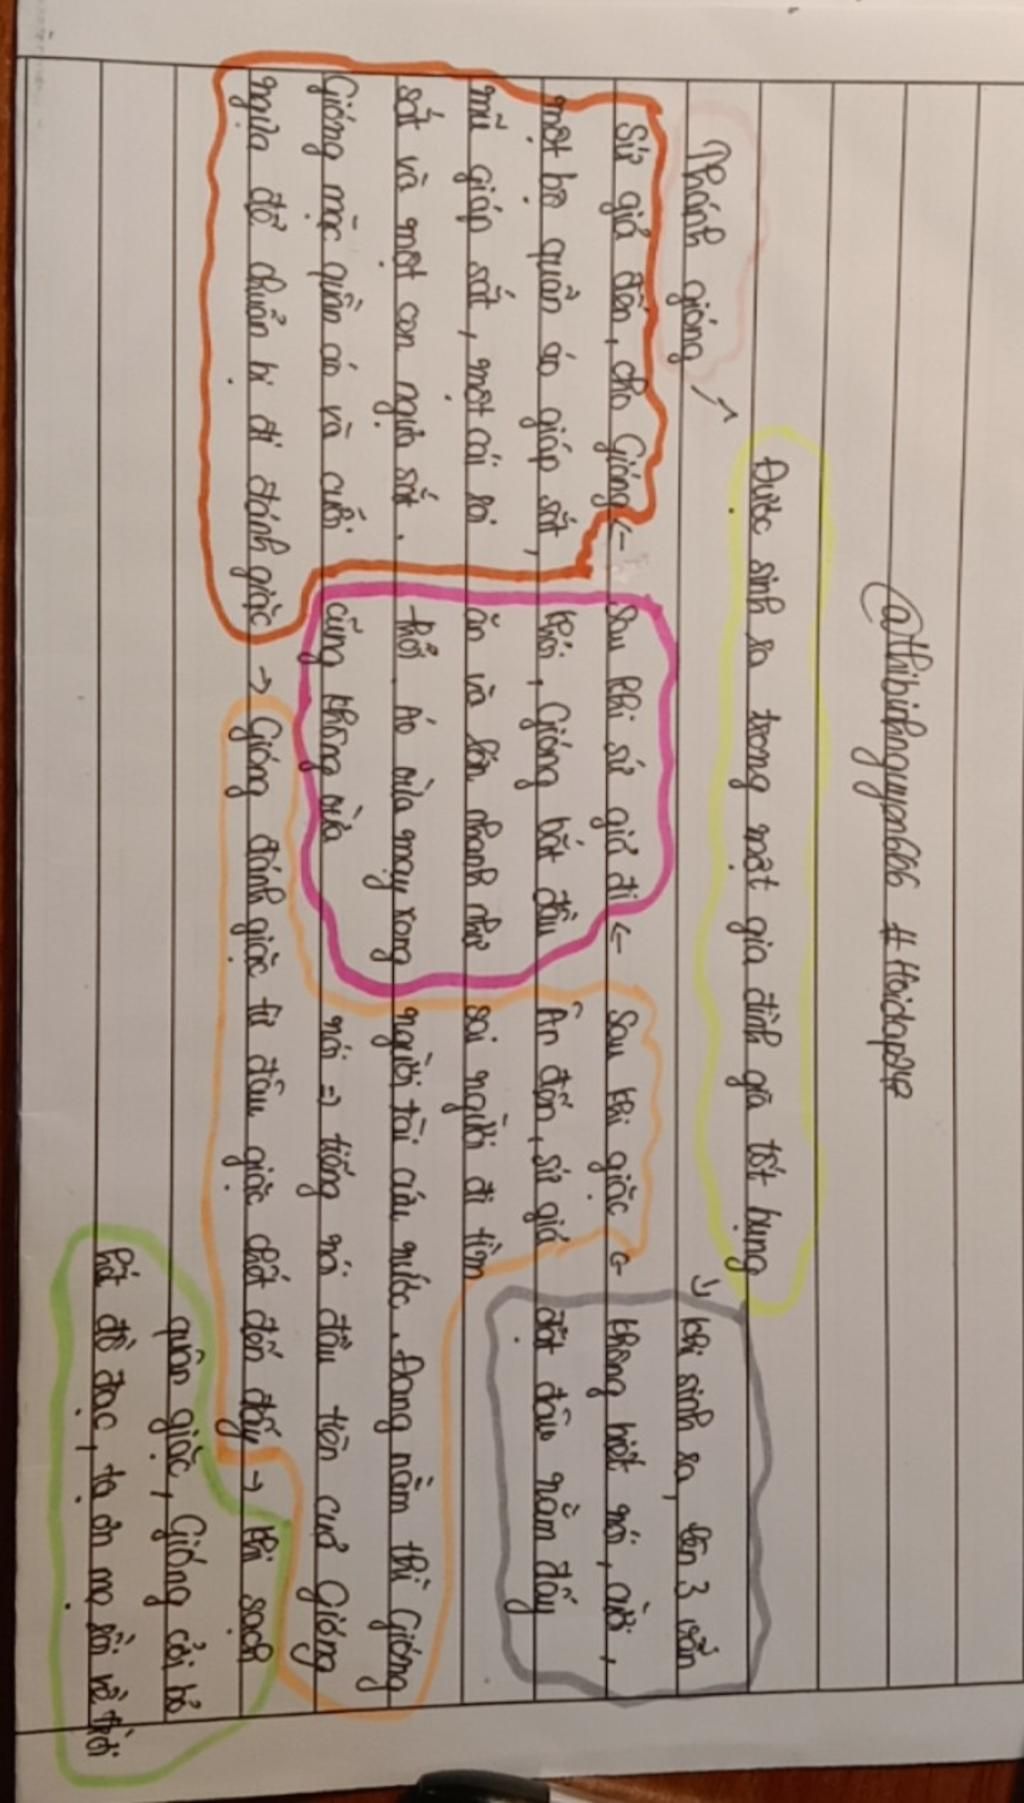 @thibinhnguyen606 #Hoidap247
Được sinh ra trong một gia đình già tốt bụng
Thánh gióng →
↓ Khi sinh ra, lên 3 vẫn
không biết nói, cười,
đặt đâu nằm đấy
← Sau khi giặc
Ân đến, sứ giả
sai người đi tìm
người tài cứu nước. Đang nằm thì Gióng
nói => tiếng nói đầu tiên của Gióng
← Sau khi sứ giả đi
khỏi, Gióng bắt đầu
ăn và lớn nhanh như
thổi. Áo vừa may xong
cũng không vừa
Sứ giả đến, cho Gióng
một bộ quần áo giáp sắt,
mũ giáp sắt, một cái roi
sắt và một con ngựa sắt.
Gióng mặc quần áo và cưỡi
ngựa để chuẩn bị đi đánh giặc
→ Gióng đánh giặc từ đâu giặc chết đến đấy → Khi sạch
quân giặc, Gióng cởi bỏ
hết đồ đạc, tạ ơn mẹ rồi về trời